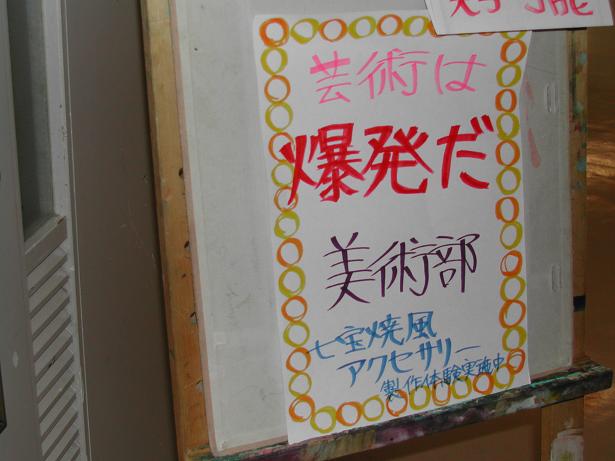 芸術は
爆発だ
美術部
七宝焼風
アクセサリー
製作体験実施中